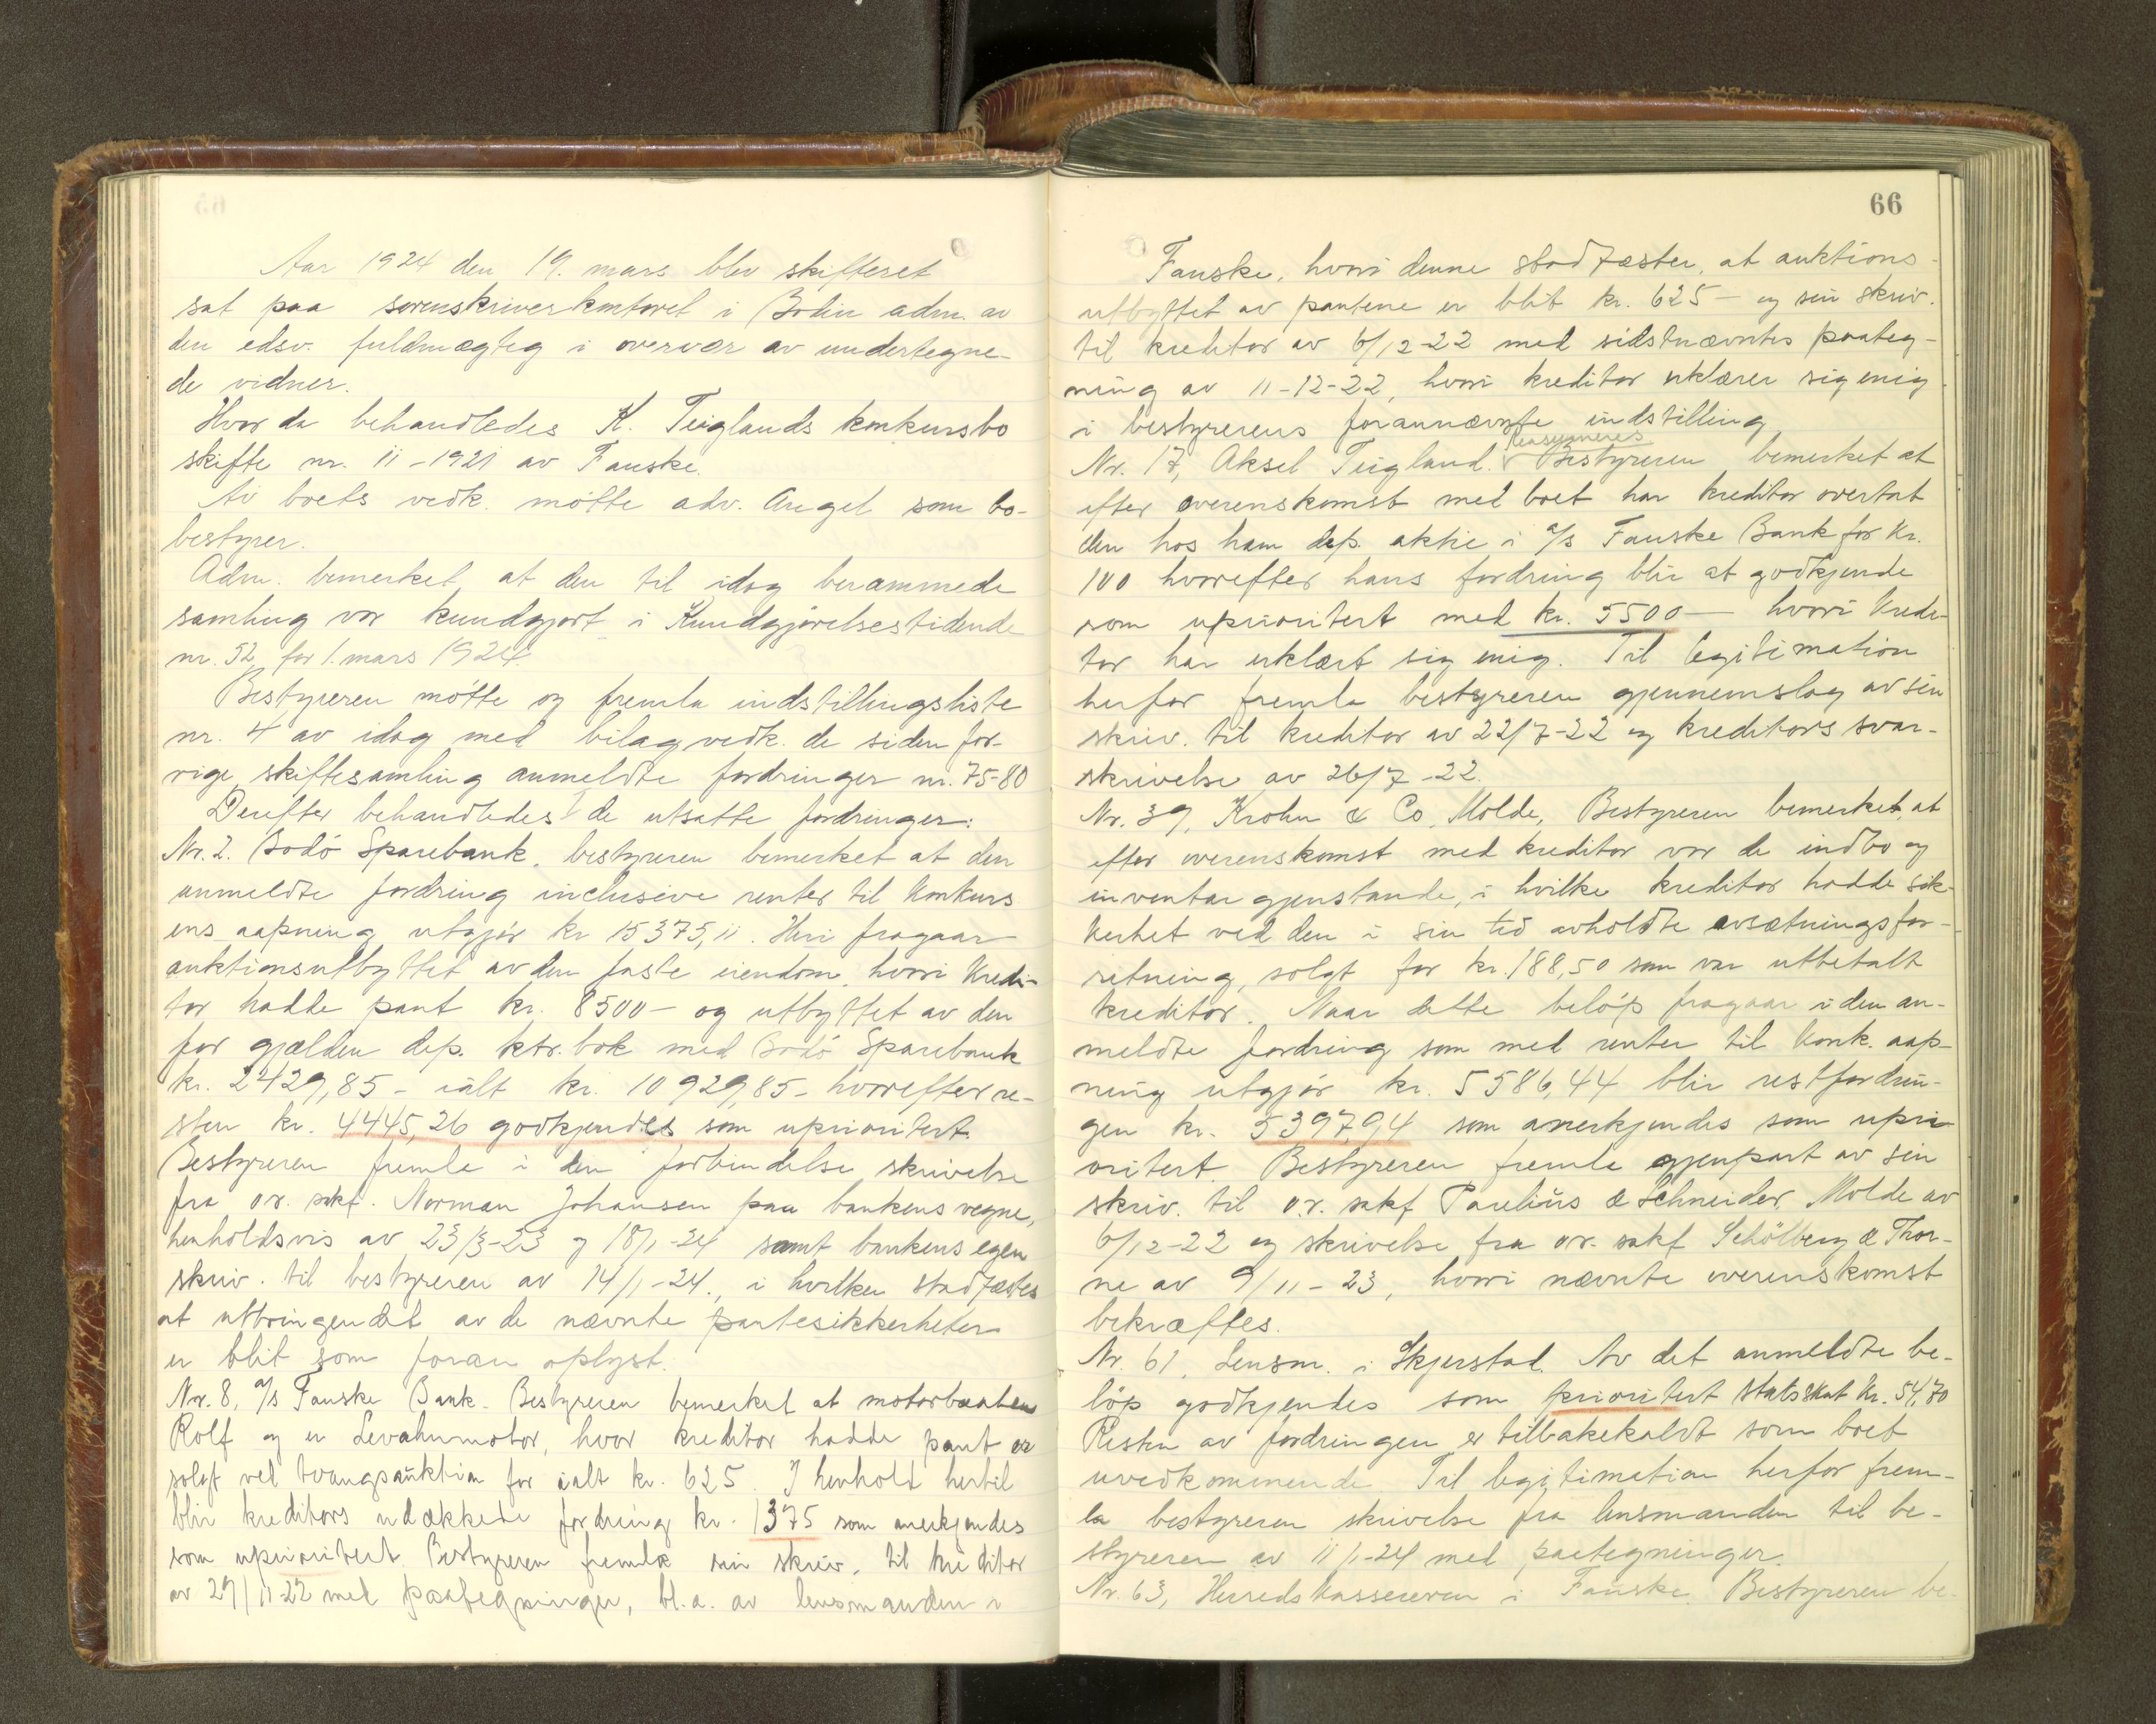 Aar 1924 den 19. mars blev skifteret
sat paa sorenskriverkontoret i Bodin adm. av
den edsv. fuldmægtig i overvær av undertegne-
de vidner.
Hvor da behandledes K. Teiglands konkursbo
skifte nr. 11-1921 av Fauske.
Av boets vedk. møtte adv. Angel som bo-
bestyrer.
Adm. bemerket, at den til idag berammede
samling var kundgjort i Kundgjørelsestidende
nr. 52 for 1. mars 1924.
Bestyreren møtte og fremla indstillingsliste
nr. 4 av idag med bilag vedk. de siden for-
rige skiftesamling anmeldte fordringer nr. 75-80
Derefter behandledes de utsatte fordringer:
Nr. 2. Bodö Sparebank. bestyreren bemerket at den
anmeldte fordring inclusive renter til konkurs
ens aapning utgjør kr 15375,11. Heri fragaar
auktionsutbyttet av den faste eiendom, hvori kredi-
tor hadde pant kr. 8500- og utbyttet av den
for gjælden dep. ktr. bok med Bodö Sparebank
kr. 2429,85 - ialt kr. 10929,85 - hvorefter re-
sten kr. 4445,26 godkjendes som uprioritert.
Bestyreren fremla i den forbindelse skrivelse
fra o.r. sakf. Norman Johansen paa bankens vegne,
henholdsvis av 23/3-23 og 18/1-24 samt bankens egen
skriv. til bestyreren av 14/1-24., i hvilken stadfæstes
at utbringendet av de nævnte pantesikkerheter
er blit som foran oplyst.
Nr. 8, a/s Fauske Bank. Bestyreren bemerket at motorbaaten
Rolf og en Levahnmotor, hvor kreditor hadde pant er
solgt ved tvangsauktion for ialt kr. 625. I henhold hertil
blir kreditors udækkede fordring kr. 1375 som anerkjendes
som uprioritert. Bestyreren fremla sin skriv. til kreditor
av 29/11-22 med paategninger, bl.a. av lensmanden i
66
Fauske, hvori denne stadfæster, at auktions-
utbyttet av pantene er blit kr. 625 - og sin skriv.
til kreditor av 6/12-22 med sidstnævntes paateg-
ning av 11-12-22, hvori kreditor erklærer sig enig
i bestyrerens forannævnte indstilling
Nr. 17, Aksel Teigland. Bestyreren bemerket at
efter overenskomst med boet har kreditor overtat
den hos ham dep. aktie i a/s Fauske Bank for kr.
100 hvorefter hans fordring blir at godkjende
som uprioritert med kr. 5500 - hvori kredi-
tor har erklært sig enig. Til legitimation
herfor fremla bestyreren gjennemslag av sin
skriv. til kreditor av 22/7-22 og kreditors svar-
skrivelse av 26/7-22.
Nr. 39, Krohn & Co, Molde, Bestyreren bemerket, at
efter overenskomst med kreditor var de indbo og
inventargjenstande, i hvilke kreditor hadde sik-
kerhet ved den i sin tid avholdte avsætningsfor-
retning, solgt for kr. 188,50 som var utbetalt
kreditor. Naar dette beløp fragaar i den an-
meldte fordring som med renter til konk. aap-
ning utgjør kr. 5586,44 blir restfordrin-
gen kr. 5397,94 som anerkjendes som upri-
oritert. Bestyreren fremla gjenpart av sin
skriv. til o.r. sakf Paulius & Schneider, Molde av
6/12-22 og skrivelse fra o.r. sakf Schölberg & Thor-
ne av 9/11-23, hvori nævnte overenskomst
bekræftes.
Nr. 61, Lensm. i Skjerstad. Av det anmeldte be-
løp godkjendes som prioritert statsskat kr. 54,70
Resten av fordringen er tilbakekaldt som boet
uvedkommende. Til legitimation herfor frem-
la bestyreren skrivelse fra lensmanden til be-
styreren av 11/1-24 med paategninger.
Nr. 63, Herredskassereren i Fauske. Bestyreren be-